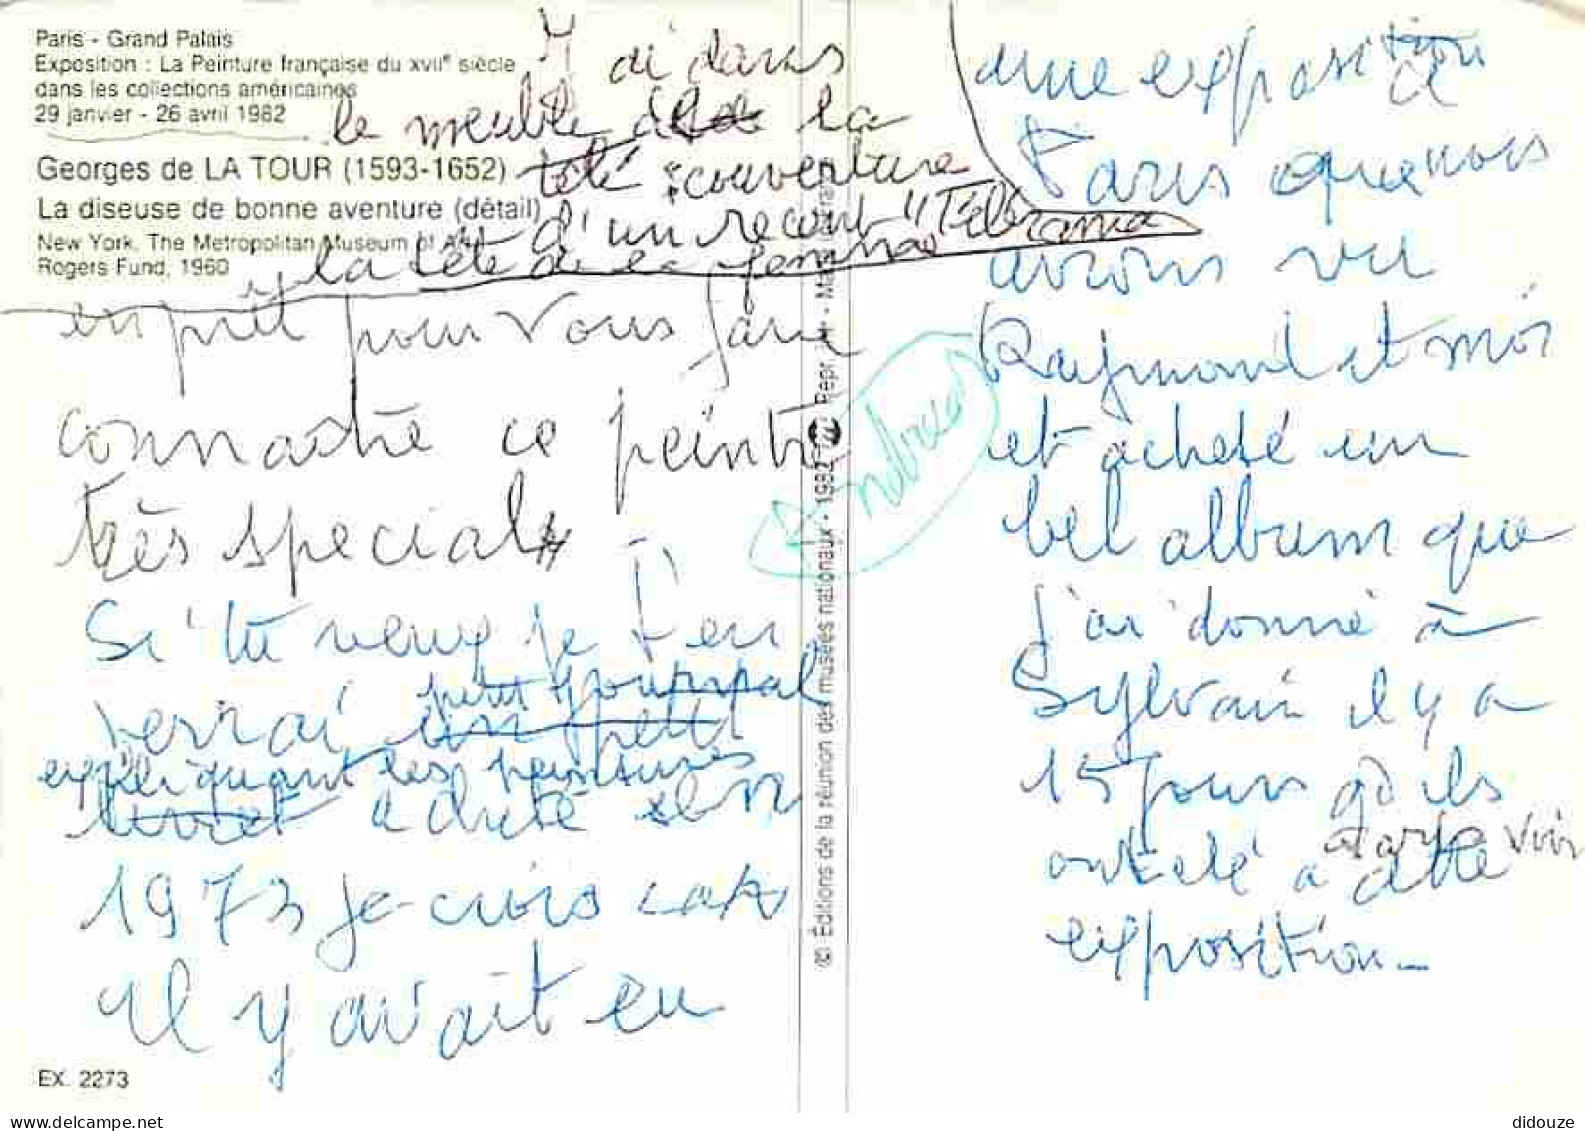 Paris - Grand Palais
Exposition : La Peinture française du XVIIe siècle
dans les collections américaines
29 janvier - 26 avril 1982
Georges de LA TOUR (1593-1652)
La diseuse de bonne aventure (détail)
New York. The Metropolitan Museum of Art
Rogers Fund, 1960
ai dans
le meuble de la
télé : couverture
d'un recent "Télérama
la tête de la femme
en prêt pour vous faire
connaître ce peintre
très special
Si tu veux je t'en
verrai un petit
petit journal
expliquant les peintures
livret acheté en
1973 je crois car
il y avait eu
une exposition
a
Paris que nous
avions vu
Raymond et moi
et acheté un
bel album que
j'ai donné à
Sylvain il y a
15 jours qd ils
ont été à cette
exposition
Andrieu
© Éditions de la réunion des musées nationaux - 1982
EX. 2273
didouze